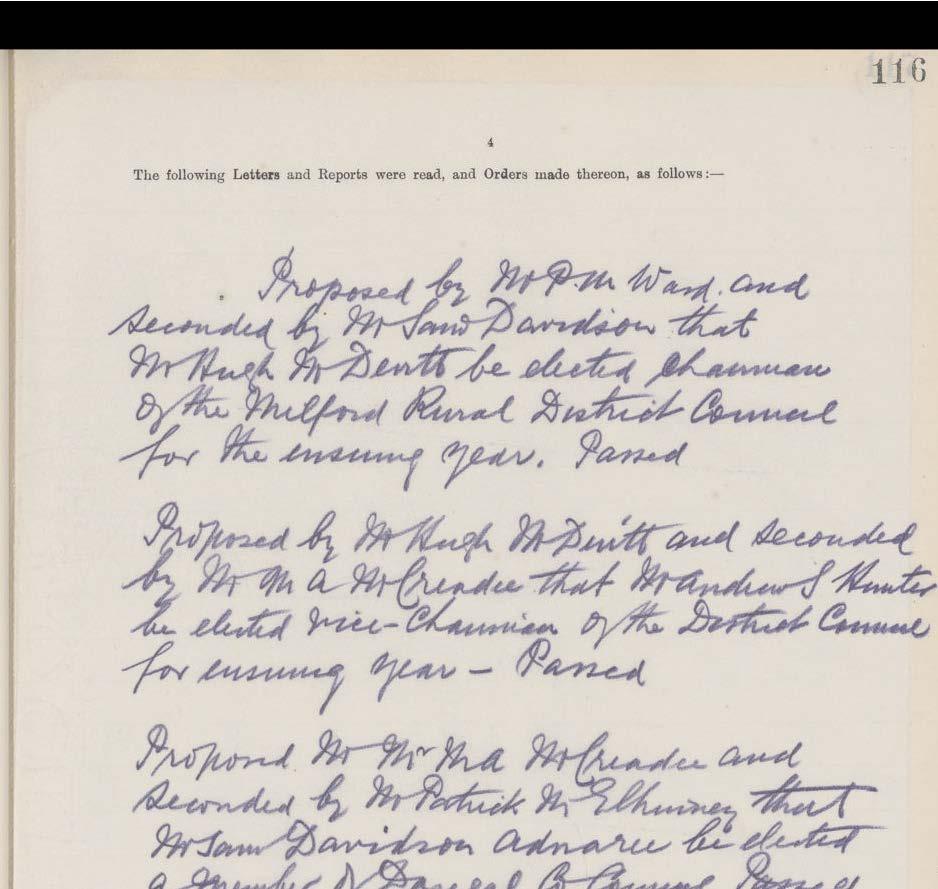 116
4
The following Letters and Reports were read, and Orders made thereon, as follows:—
Proposed by Mr P.M Ward. and
seconded by Mr Saml Davidson that
Mr Hugh McDevitt be elected Chairman
of the Milford Rural District Council
for the ensuing year. Passed
Proposed by Mr Hugh McDevitt and seconded
by Mr M A McCreadie that Mr Andrew S Hunter
be elected Vice-Chairman of the District Council
for ensuing year – Passed
Proposed Mr M A McCreadie and
seconded by Mr Patrick McElhinney that
Mr Saml Davidson be elected
a member of Donegal Co Council Passed